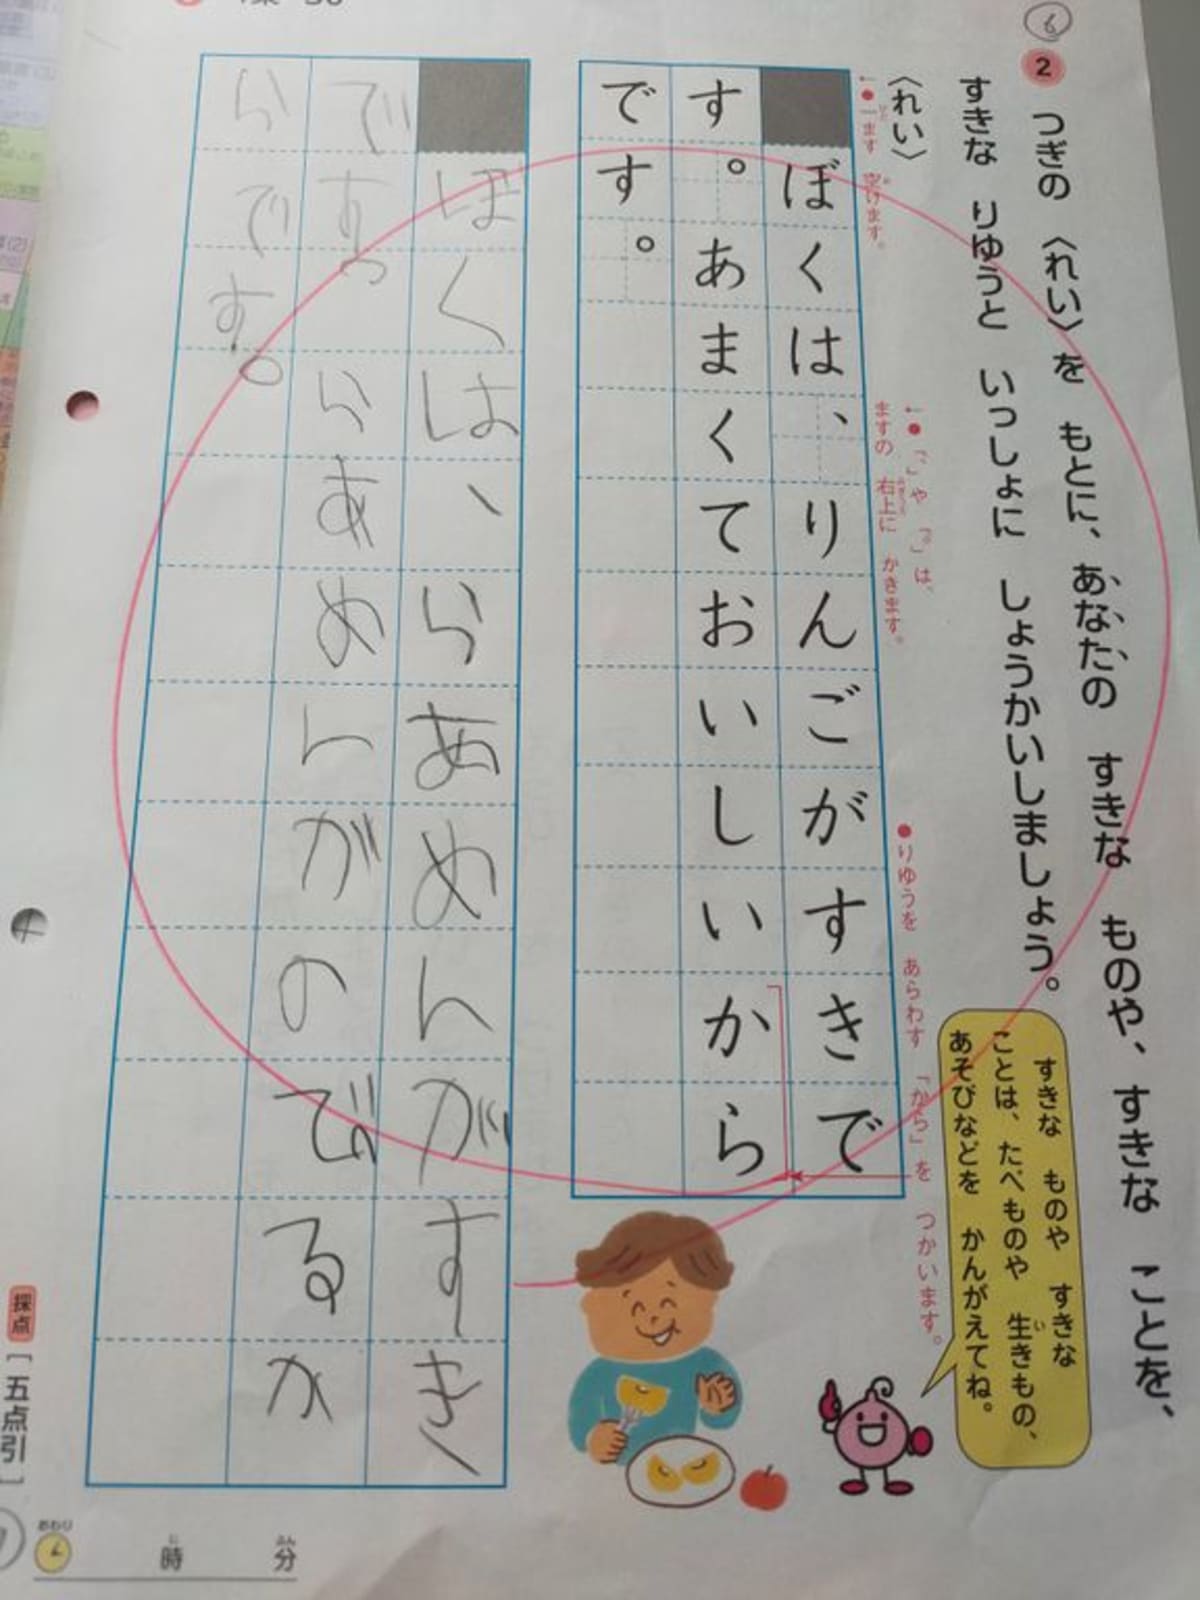 6
2 つぎの 〈れい〉を もとに、あなたの すきな ものや、すきな ことを、
すきな りゆうと いっしょに しょうかいしましょう。
〈れい〉
●一ます 空けます。
●「、」や「。」は、
ますの 右上に かきます。
●りゆうを あらわす 「から」を つかいます。
ぼくは、りんごがすきで
す。あまくておいしいから
です。
すきな ものや すきな
ことは、たべものや 生きもの、
あそびなどを かんがえてね。
ぼくは、らあめんがすき
です。らあめんがのびるか
らです。
採点
[五点引]
おわり
時 分